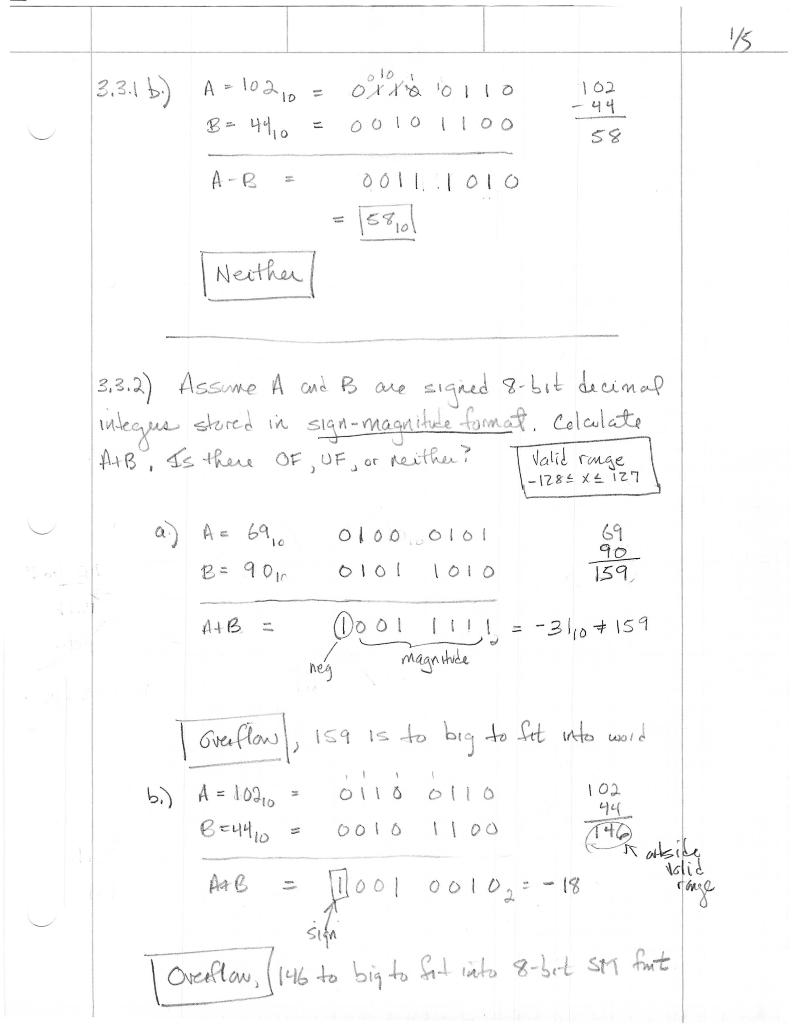 1/5
3.3.1 b.) A = 102₁₀ = 0110 0110 102
B = 44₁₀ = 0010 1100 - 44
58
A-B = 0011 1010
= 58₁₀
Neither
3.3.2) Assume A and B are signed 8-bit decimal
integers stored in sign-magnitude format. Calculate
A+B. Is there OF, UF, or neither?
Valid range
-128 ≤ x ≤ 127
a.) A = 69₁₀ 0100 0101 69
B = 90₁₀ 0101 1010 90
159
A+B = 1001 1111₂ = -31₁₀ ≠ 159
neg magnitude
Overflow, 159 is to big to fit into word
b.) A = 102₁₀ = 0110 0110 102
B = 44₁₀ = 0010 1100 44
146
outside
valid
range
A+B = 1001 0010₂ = -18
sign
Overflow, 146 to big to fit into 8-bit SM fmt